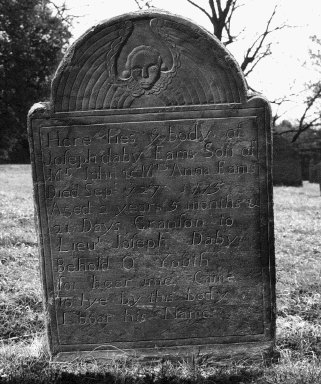 Here Lies ye body of
Joseph daby Eams Son of
Mr John & Mrs Anna Eams
Died Sept 1775
Aged 2 years 5 months &
21 Days Grandson to
Lieut Joseph Daby
Behold O
for hear you
to lye by the body
his Name